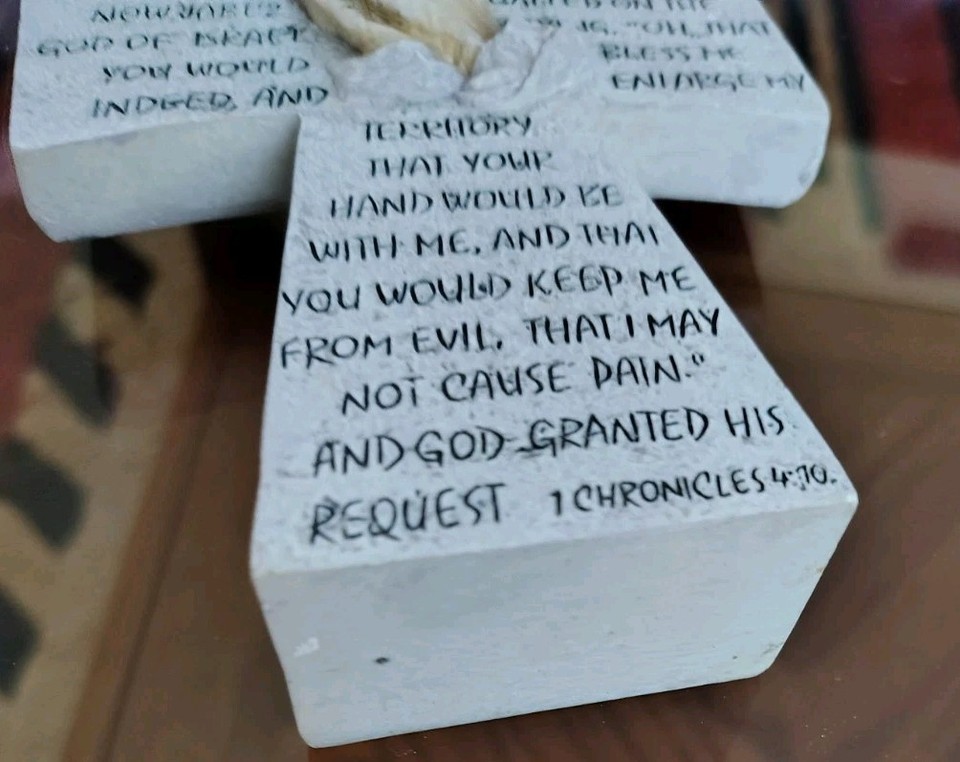 NOW JABEZ CALLED ON THE
GOD OF ISRAEL "OH, THAT
YOU WOULD BLESS ME
INDEED, AND ENLARGE MY
TERRITORY
THAT YOUR
HAND WOULD BE
WITH ME, AND THAT
YOU WOULD KEEP ME
FROM EVIL, THAT I MAY
NOT CAUSE PAIN."
AND GOD GRANTED HIS
REQUEST 1 CHRONICLES 4:10.